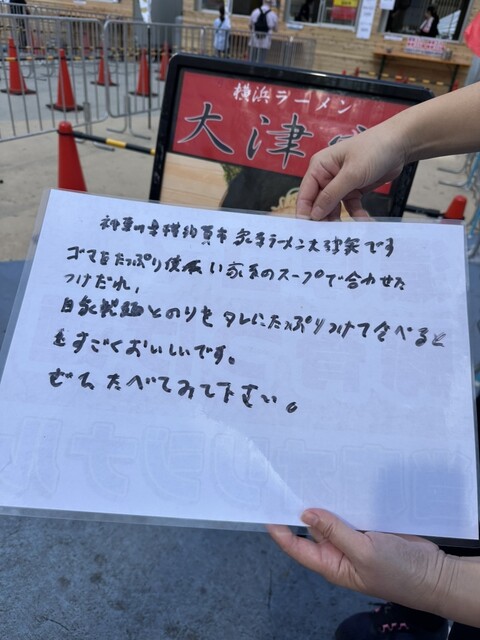 横浜ラーメン
大津家
神奈川県横須賀市家系ラーメン大津家です
ゴマをたっぷり使い家系のスープで合わせた
つけだれ、
自家製麺とのりをタレにたっぷりつけて食べると
とすごくおいしいです。
ぜひたべてみて下さい。